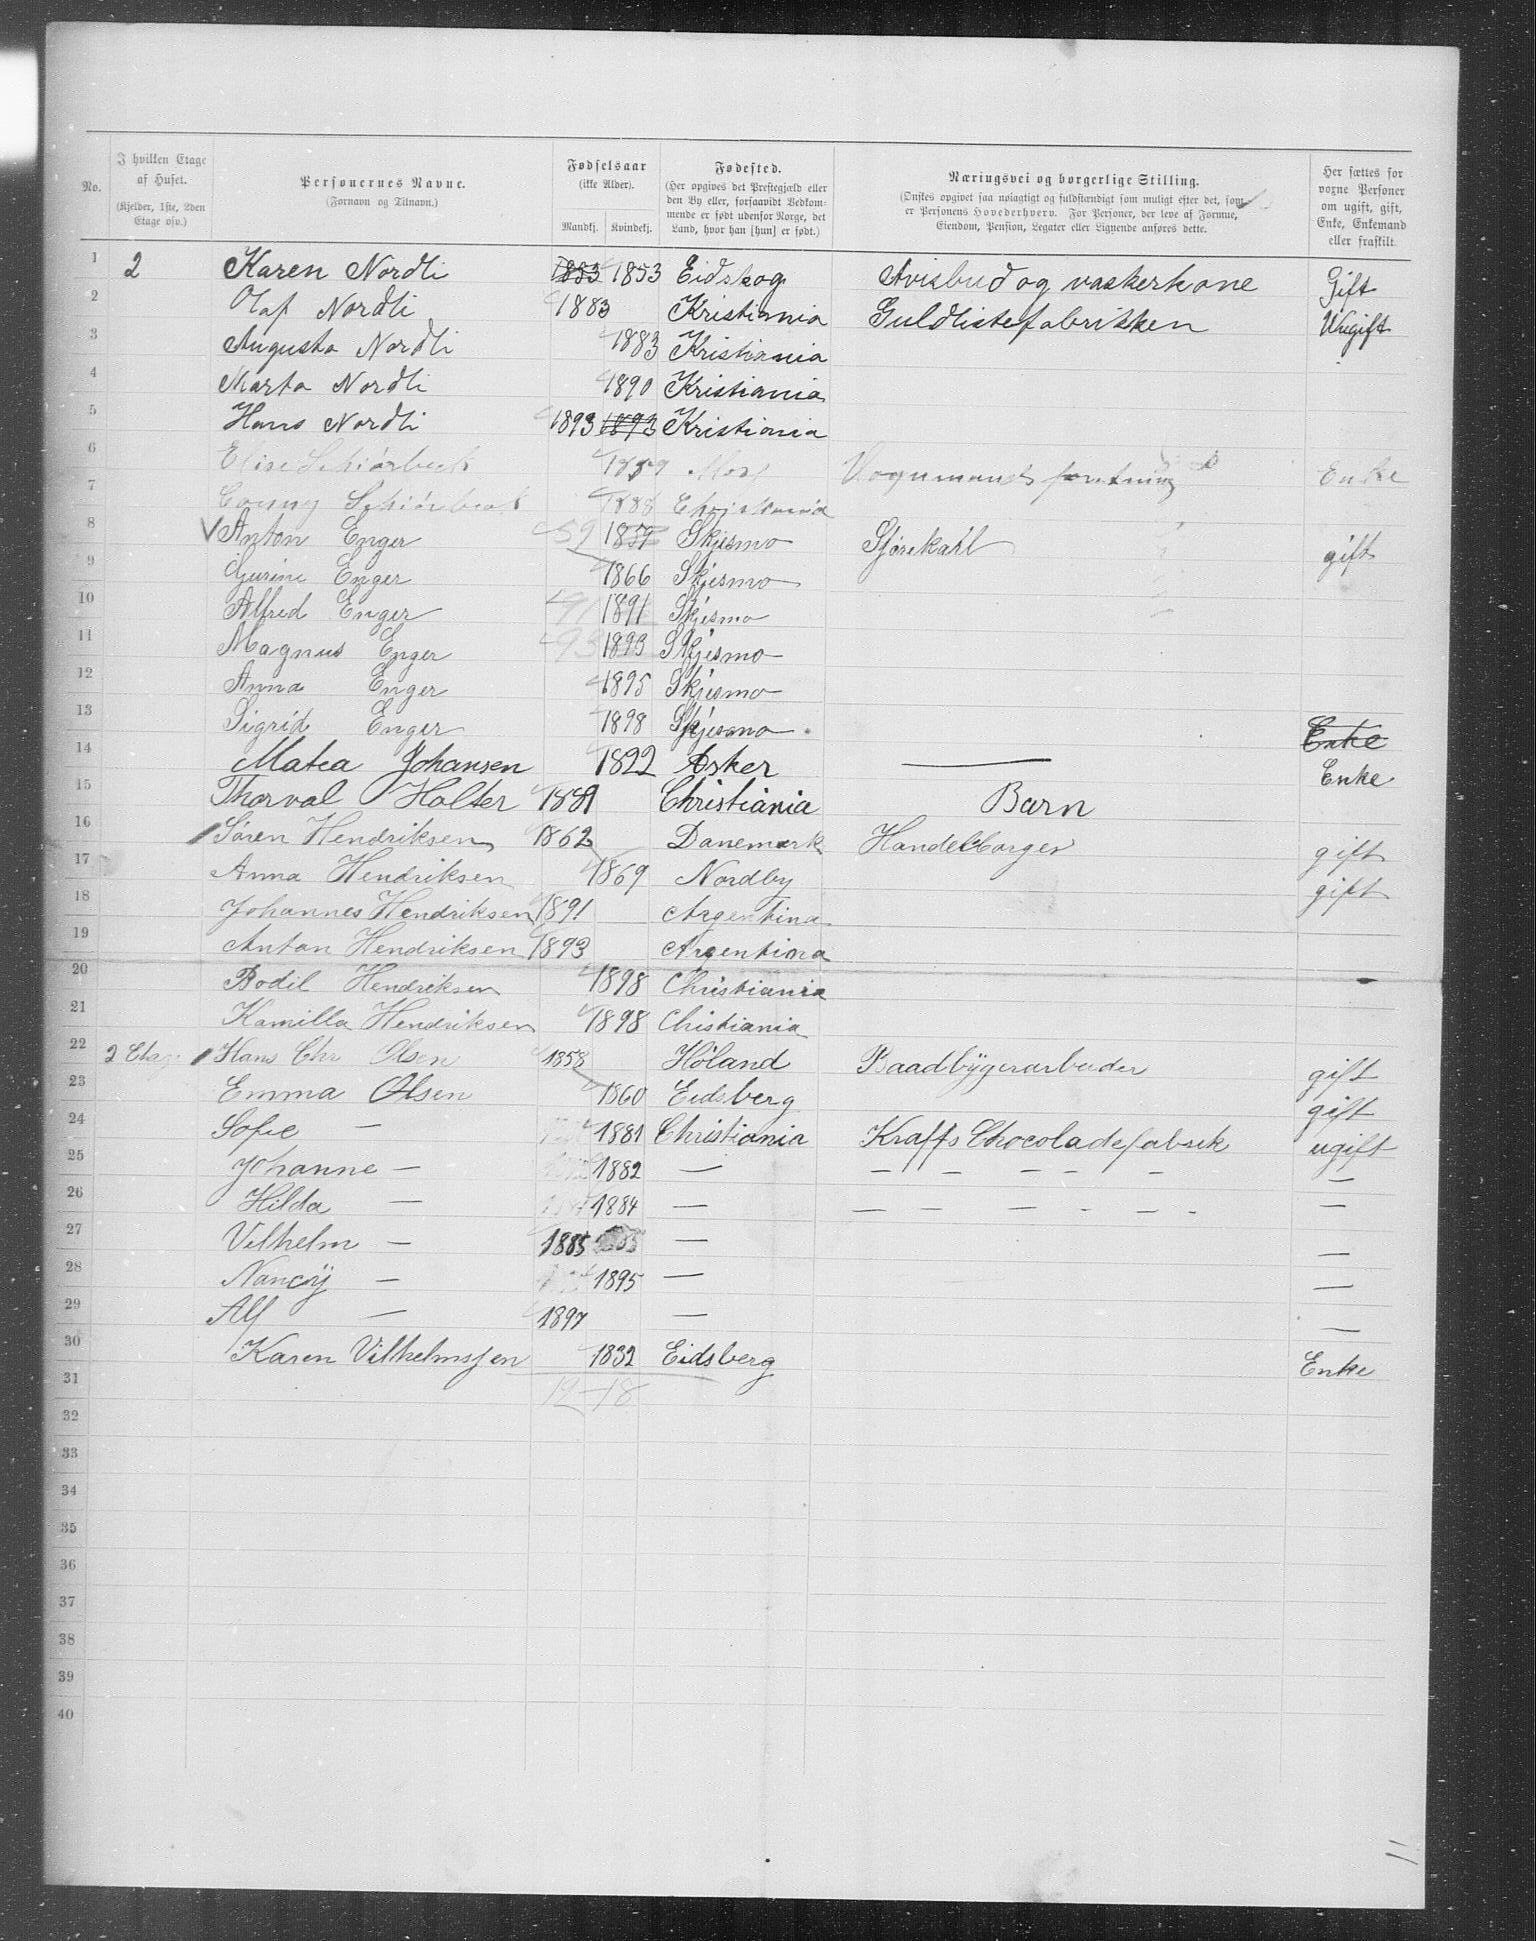 No. | I hvilken Etage af Huset. (Kjelder, 1ste, 2den Etage osv.) | Personernes Navne. (Fornavn og Tilnavn.) | Fødselsaar (ikke Alder). Mandkj. Kvindekj. | Fødested. (Her opgives det Prestegjæld eller den By eller, forsaavidt Vedkommende er født udenfor Norge, det Land, hvor han [hun] er født.) | Næringsvei og borgerlige Stilling. (Ønskes opgivet saa nøiagtigt og fuldstændigt som muligt efter det, som er Personens Hovederhverv. For Personer, der leve af Formue, Eiendom, Pension, Legater eller Lignende anføres dette. | Her sættes for voxne Personer om ugift, gift, Enke, Enkemand eller fraskilt.
1 2 Karen Nordli 1853 1853 Eidskog Avisbud og vaskerkone Gift
2 Olaf Nordli 1883 Kristiania Guldlistefabrikken Uugift
3 Augusta Nordli 1883 Kristiania
4 Marta Nordli 1890 Kristiania
5 Hans Nordli 1893 1893 Kristiania
6 Elise Schiørbeck 1859 Moss forretning Enke
7 Schiørbeck 1888 Christiania
8 Anton Enger 59 1859 Skjesmo Sjørekarl gift
9 Gurine Enger 1866 Skjesmo
10 Alfred Enger 91 1891 Skjesmo
11 Magnus Enger 93 1893 Skjesmo
12 Anna Enger 1895 Skjesmo
13 Sigrid Enger 1898 Skjesmo Enke
14 Matea Johansen 1822 Asker — Enke
15 Thorval Holter 1891 Christiania Barn
16 Søren Hendriksen 1862 Danemark Handelborger gift
17 Anna Hendriksen 1869 Nordby gift
18 Johannes Hendriksen 1891 Argentina
19 Anton Hendriksen 1893 Argentina
20 Bodil Hendriksen 1898 Christiania -
21 Kamilla Hendriksen 1898 Chistiania
22 2 Etage Hans Chr Olsen 1858 Höland Baadbÿgerarbeider gift
23 Emma Olsen 1860 Eidsberg gift
24 Sofie — 1881 Christiania Kraffs Chocoladefabrik ugift
25 Johanne — 1882 — — — — - - —
26 Hilda — 1884 — — — — - — - —
27 Vilhelm — 1885 — —
28 Nancÿ — 1895 — —
29 Alf — 1897 — —
30 Karen Vilhelmssen 1832 Eidsberg Enke
31 12-18
32
33
34
35
36
37
38
39
40